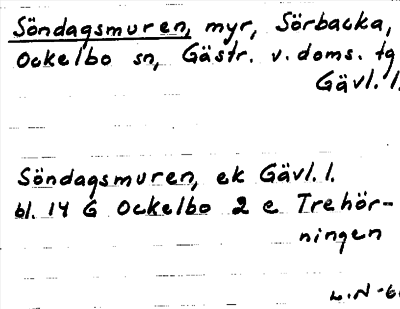 Söndagsmuren, myr, Sörbacka,
Ockelbo sn, Gästr. v. doms. tg
Gävl. l.
Söndagsmuren, ek Gävl. l.
bl. 14 G Ockelbo 2 e Trehör-
ningen
L.N -6